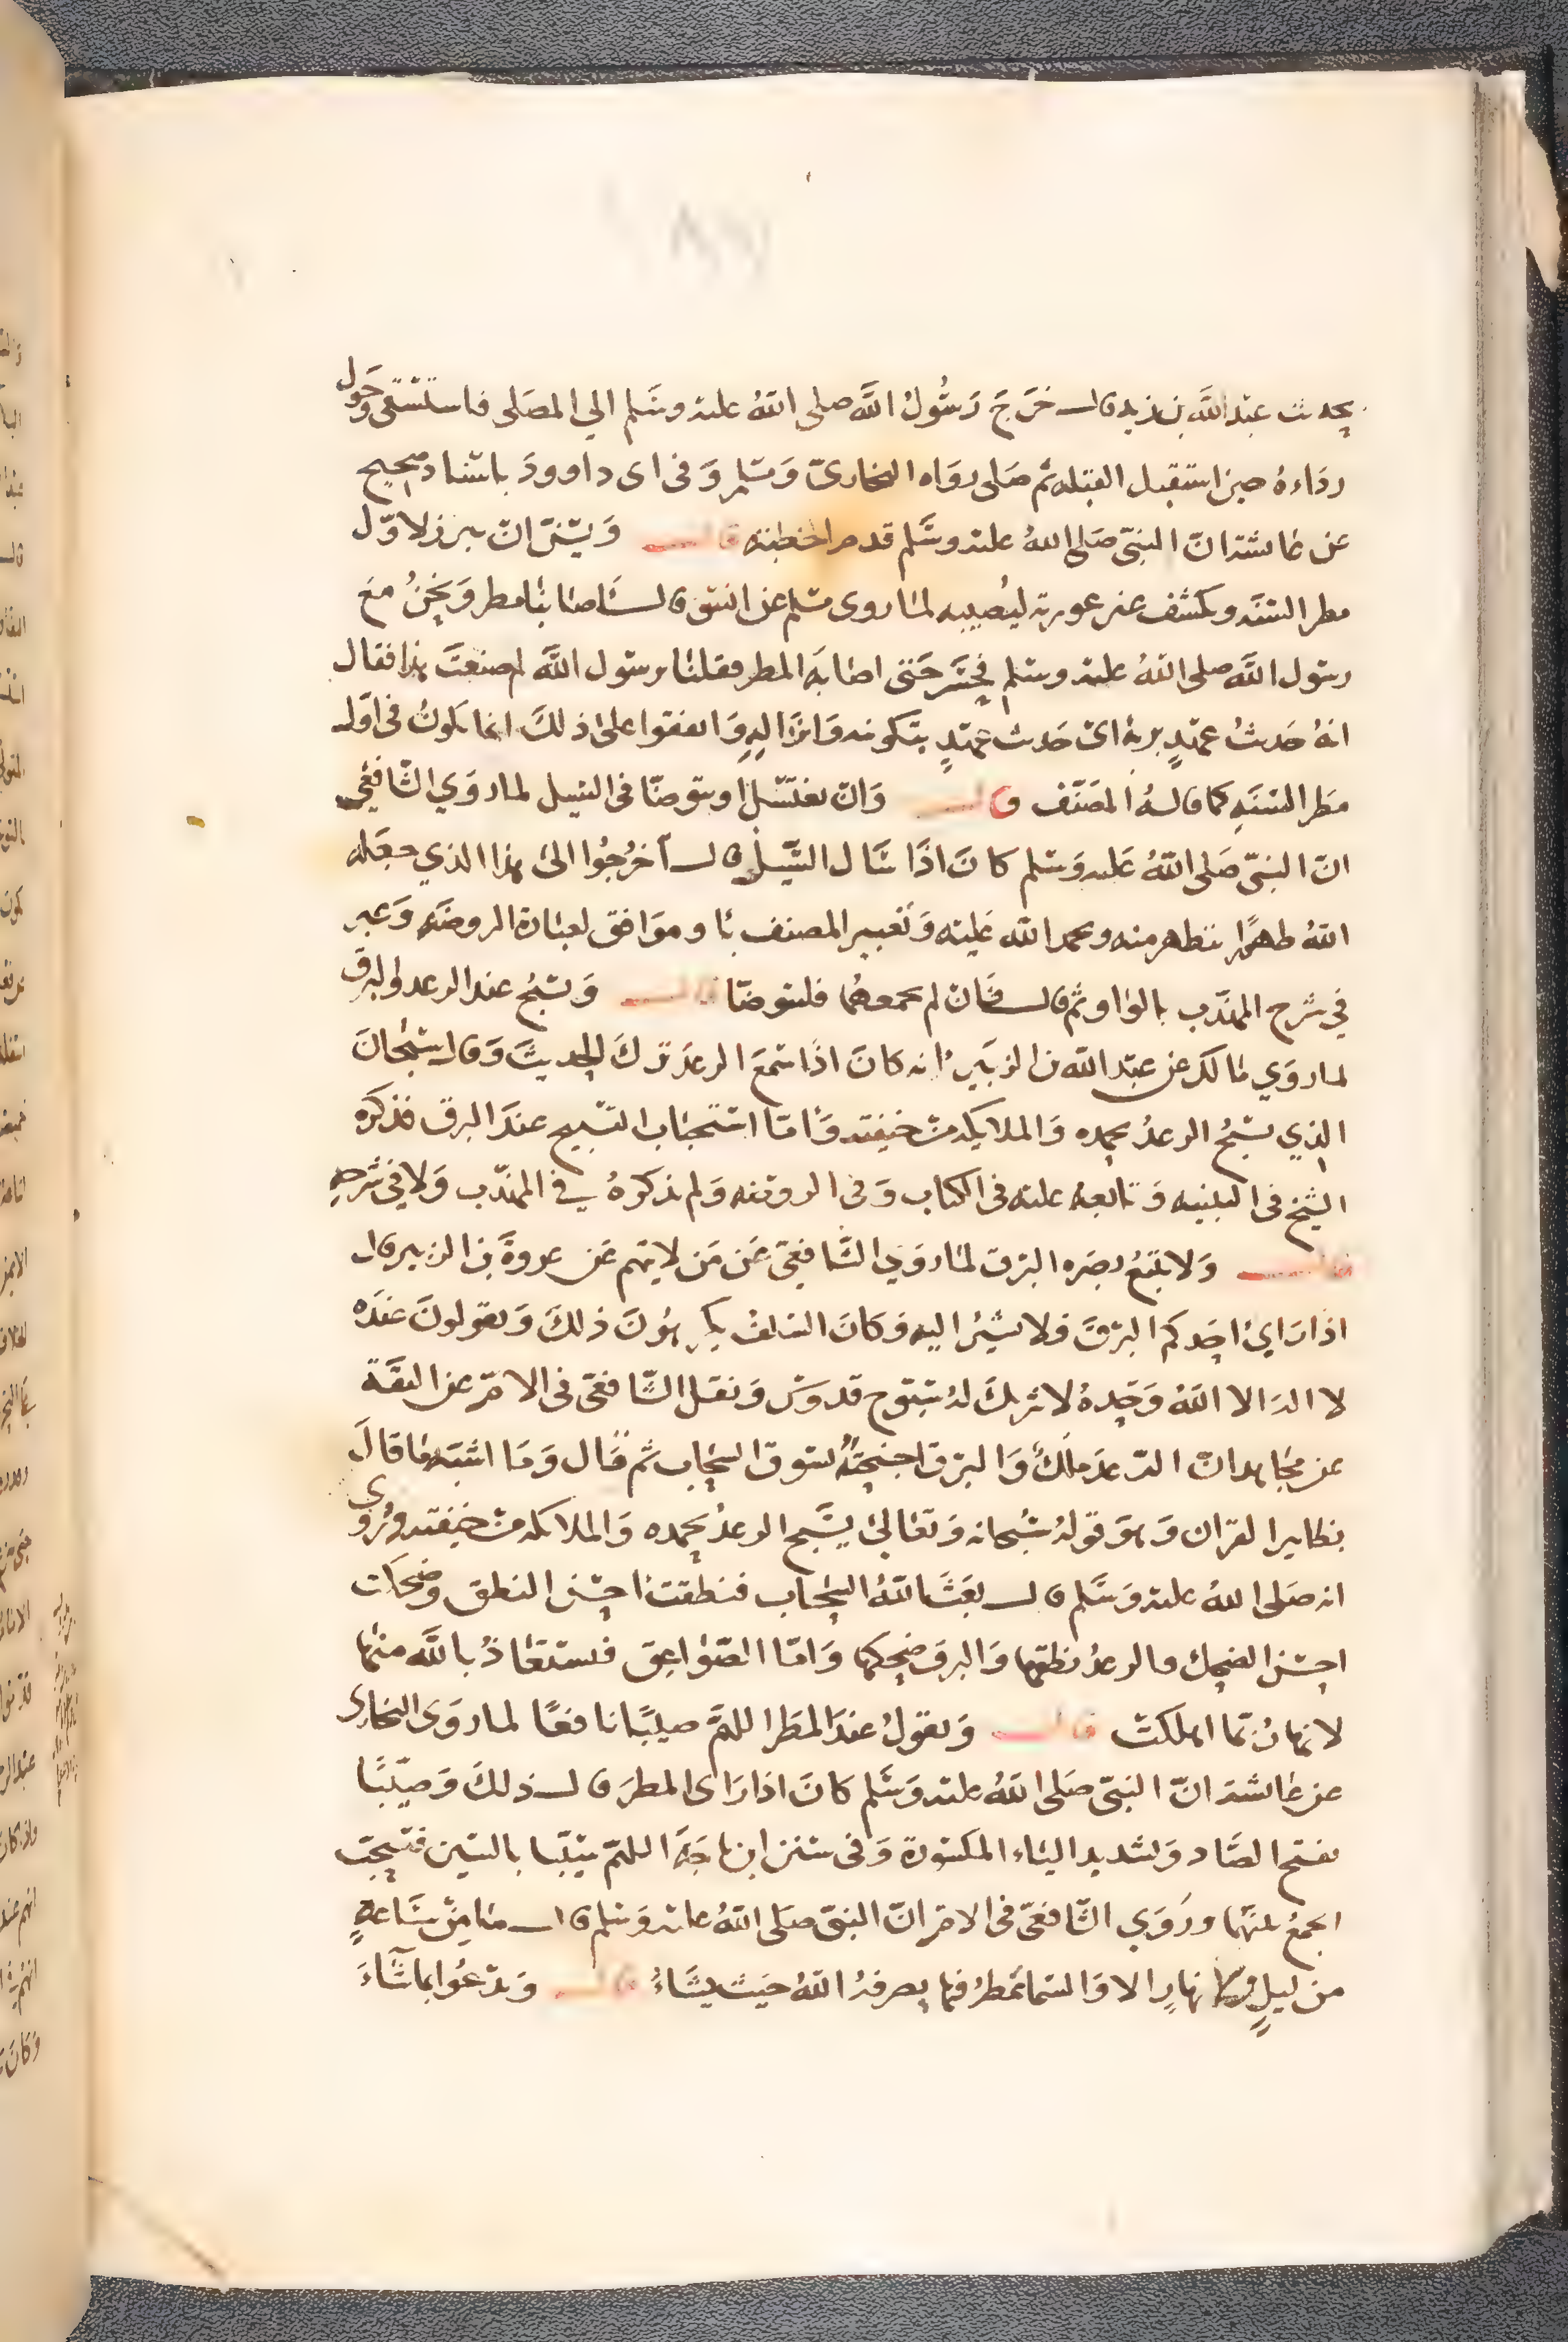 بحديث عبد الله بن زيد قال خرج رسول الله صلى الله عليه وسلم الي المصلى فاستسقى وحول
رداءه حين استقبل القبله ثم صلى رواه البخاري ومسلم وفى ابى داوود باسناد صحيح
عن عائشة ان النبي صلى الله عليه وسلم قدم الخطبة قال ويسن ان يبرز لاول
مطر السنه ويكشف عن عورته ليصيبه لما روى مسلم عن انس قال اصابنا مطر ونحن مع
رسول الله صلى الله عليه وسلم فحسر حتى اصابه المطر فقلنا يرسول الله لم صنعت هذا فقال
انه حديث عهد بربه اى حديث عهد بتكوينه وانزاله واتفقوا على ذلك انما يكون فى اول
مطر السنه كما قاله المصنف قال وان يغتسل او يتوضا فى السيل لما روي الشافعي
ان النبي صلى الله عليه وسلم كان اذا سال السيل قال اخرجوا الى هذا الذي جعله
الله طهورا نتطهر منه ونحمد الله عليه وتعبير المصنف باو موافق لعبارة الروضه وعبر
في شرح المهذب بالواو ثم قال فان لم يجمعهما فليتوضا قال ويسبح عند الرعد والبرق
لما روي مالك عن عبد الله بن الزبير انه كان اذا سمع الرعد ترك الحديث وقال سبحان
الذي يسبح الرعد بحمده والملايكة من خيفته واما استحباب التسبيح عند البرق فذكره
الشيخ فى التنبيه وتابعه عليه فى الكتاب وفى الروضه ولم يذكره في المهذب ولا في شرحه
قال ولا يتبع بصره البرق لما روي الشافعي عن من لا يتهم عن عروة بن الزبير قال
اذا راي احدكم البرق فلا يشير اليه وكان السلف يكرهون ذلك ويقولون عنده
لا اله الا الله وحده لا شريك له سبوح قدوس ونقل الشافعى فى الام عن الثقة
عن مجاهد ان الرعد ملك والبرق اجنحته يسوق السحاب ثم قال وما اشبه ما قال
بظاهر القران وهو قوله سبحانه وتعالى يسبح الرعد بحمده والملائكه من خيفته وروي
انه صلى الله عليه وسلم قال بعث الله السحاب فنطقت احسن النطق وضحكت
احسن الضحك فالرعد نطقها والبرق ضحكها واما الصواعق فيستعاذ بالله منها
لانها ربما اهلكت قال ويقول عند المطر اللهم صيبا نافعا لما روى البخارى
عن عائشة ان النبي صلى الله عليه وسلم كان اذا راى المطر قال ذلك وصيبا
بفتح الصاد وتشديد الياء المكسورة وفى سنن ابن ماجة اللهم سيبا بالسين فيستحب
الجمع بينهما وروي الشافعي فى الام ان النبي صلى الله عليه وسلم قال ما من ساعة
من ليل ولا نهار الا والسما تمطر فيها يصرفه الله حيث يشاء قال ويدعوا بما شاء